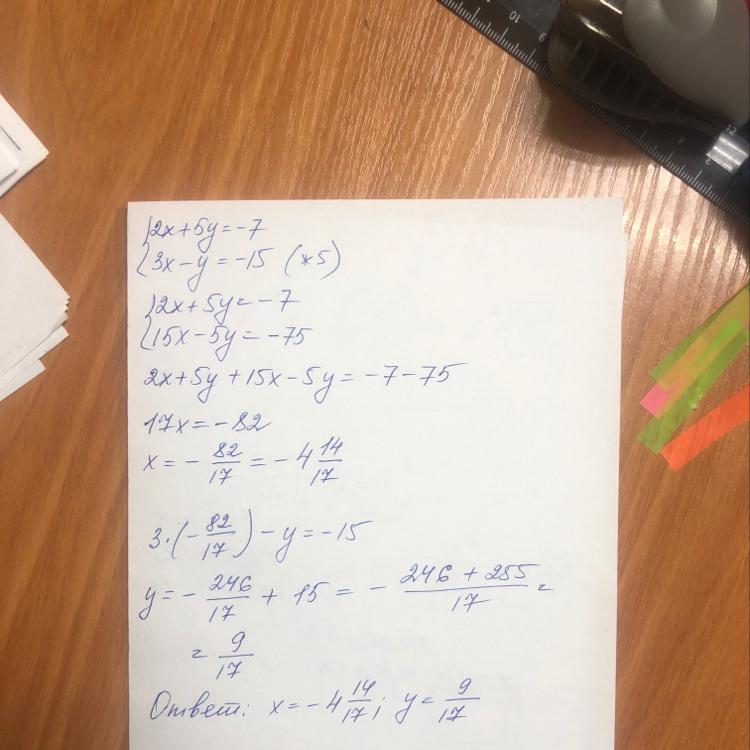 {2x+5y=-7
{3x-y=-15 (*5)
{2x+5y=-7
{15x-5y=-75
2x+5y+15x-5y=-7-75
17x=-82
x=-82/17=-4 14/17
3·(-82/17)-y=-15
y=-246/17+15=-246+255/17=
=9/17
Ответ: x=-4 14/17; y=9/17
10
9
12